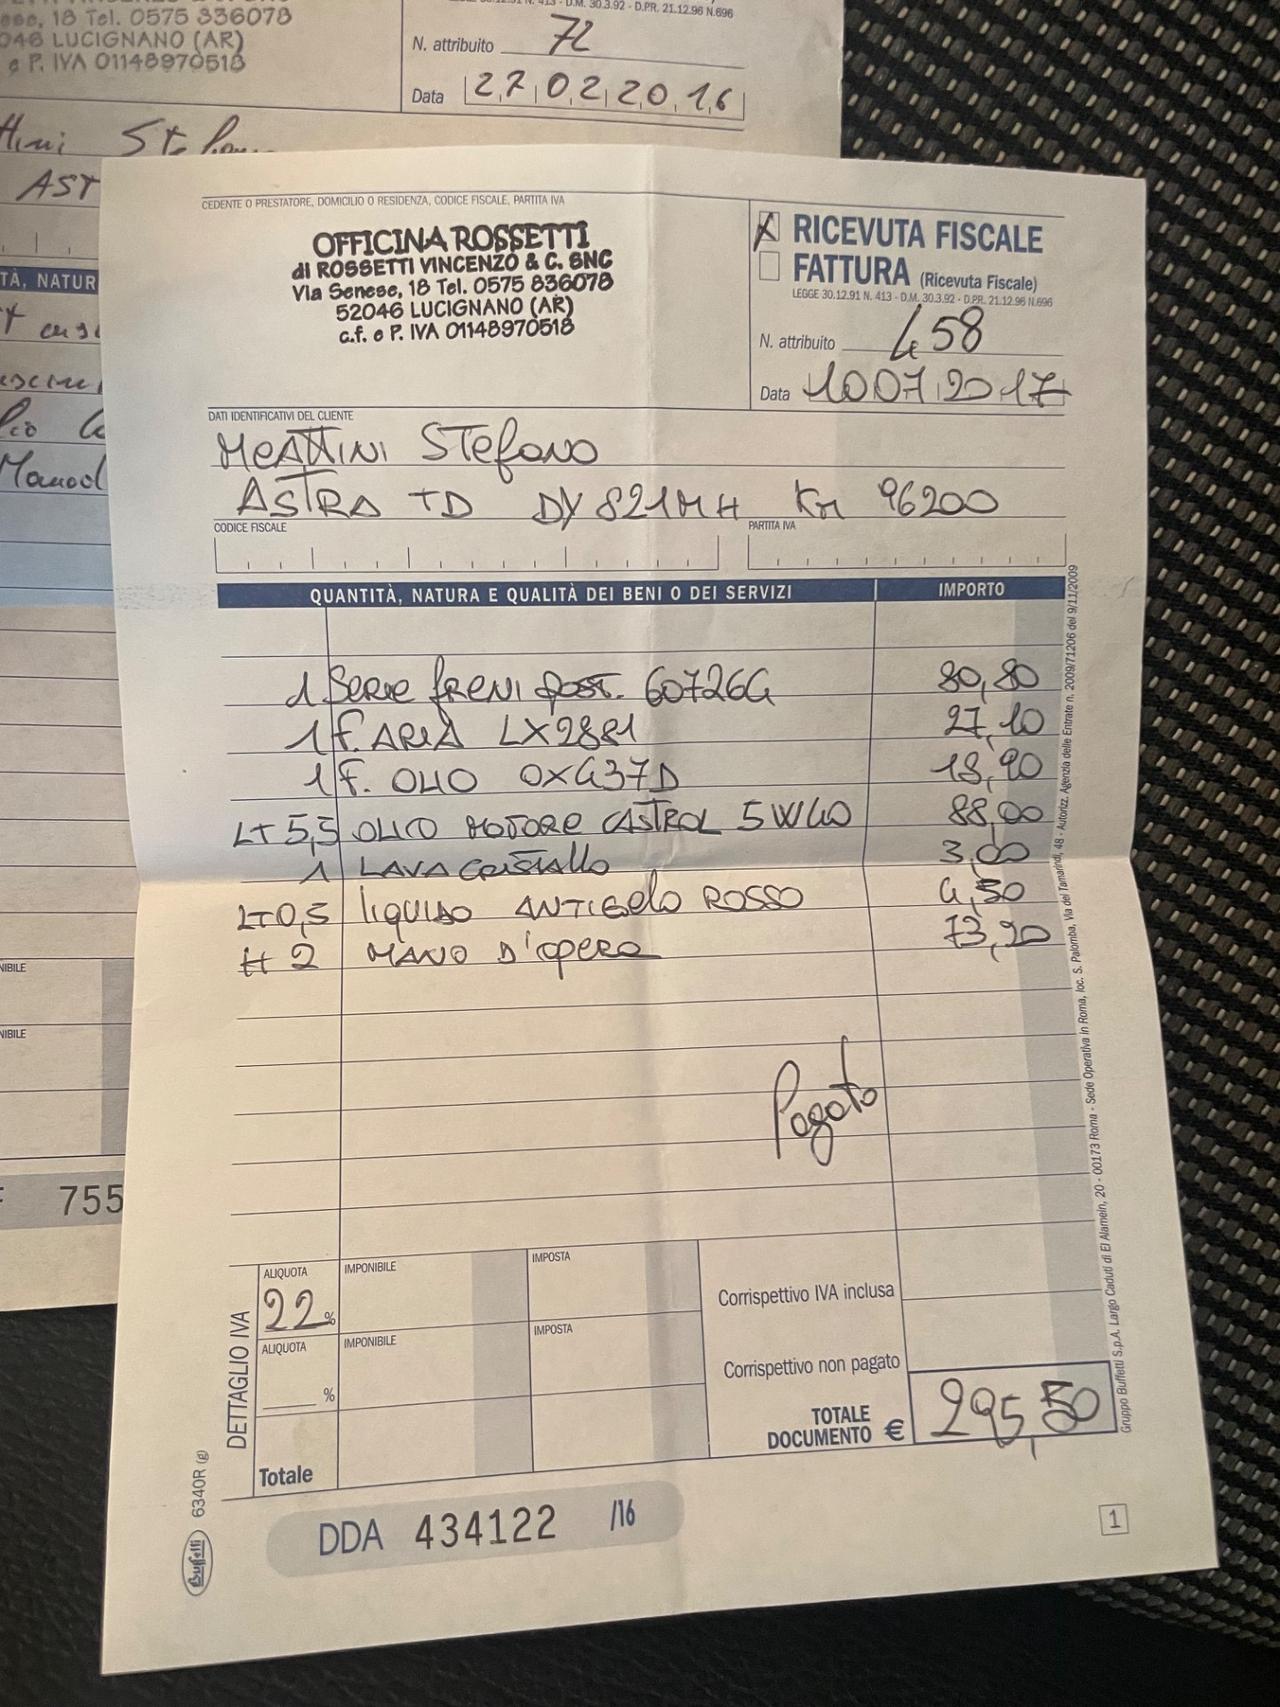 ese, 18 Tel. 0575 836078
046 LUCIGNANO (AR)
e P. IVA 01148970518
D.M. 30.3.92 - D.PR. 21.12.96 N.696
N. attribuito 72
Data 27022016
AST
TÀ, NATUR
NIBILE
NIBILE
755
CEDENTE O PRESTATORE, DOMICILIO O RESIDENZA, CODICE FISCALE, PARTITA IVA
OFFICINA ROSSETTI
di ROSSETTI VINCENZO & C. SNC
Via Senese, 18 Tel. 0575 836078
52046 LUCIGNANO (AR)
c.f. e P. IVA 01148970518
X RICEVUTA FISCALE
FATTURA (Ricevuta Fiscale)
LEGGE 30.12.91 N. 413 - D.M. 30.3.92 - D.PR. 21.12.96 N.696
N. attribuito 458
Data 10072017
DATI IDENTIFICATIVI DEL CLIENTE
MEATTINI STEFANO
ASTRA TD DY821MH KM 96200
CODICE FISCALE PARTITA IVA
QUANTITÀ, NATURA E QUALITÀ DEI BENI O DEI SERVIZI IMPORTO
1 SERIE FRENI POST. 60726G 80,80
1 F. ARIA LX2881 27,10
1 F. OLIO OX437D 18,90
LT 5,5 OLIO MOTORE CASTROL 5W40 88,00
1 LAVACRISTALLO 3,00
LT 0,5 LIQUIDO ANTIGELO ROSSO 4,50
H 2 MANO D'OPERA 73,20
Pagato
DETTAGLIO IVA
ALIQUOTA IMPONIBILE IMPOSTA
22 %
Corrispettivo IVA inclusa
ALIQUOTA IMPONIBILE IMPOSTA
%
Corrispettivo non pagato
TOTALE DOCUMENTO € 295,50
Totale
DDA 434122 /16
1
Buffetti 6340R (g)
Gruppo Buffetti S.p.A. Largo Caduti di El Alamein, 20 - 00173 Roma - Sede Operativa in Roma, loc. S. Palomba, Via dei Tamarindi, 48 - Autorizz. Agenzia delle Entrate n. 2009/71206 del 9/11/2009